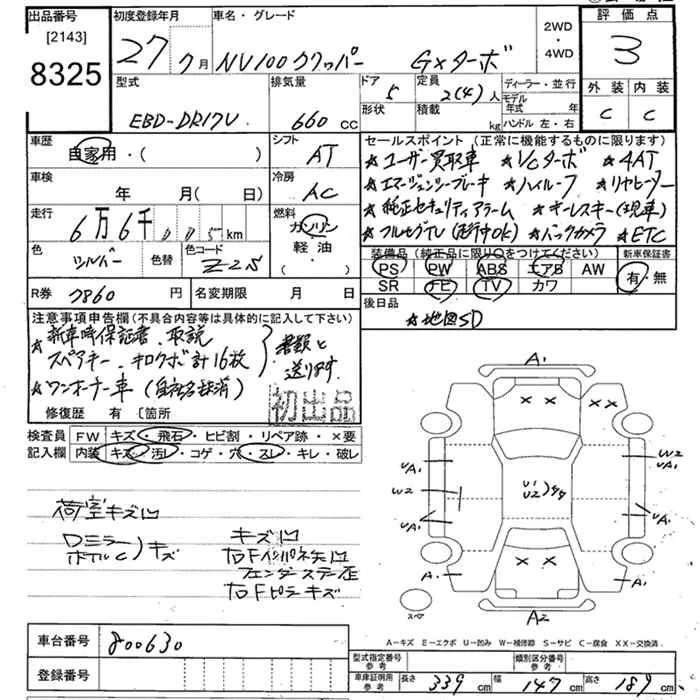 出品番号 初度登録年月 車名・グレード 評価点
[2143] 8325
27 7月 NV100クリッパー GXターボ
2WD・4WD
3
型式 排気量 ドア 定員 ディーラー・並行
EBD-DR17V 660 CC 5 2(4)人 モデル年式 年
形状 積載 kg ハンドル 左・右
外装 内装
C C
車歴 自家用・( ) シフト AT
車検 年 月(日) 冷房 AC
走行 6万6千005km 燃料 ガソリン・軽油・
色 シルバー 色替 色コード Z25
R券 7860円 名変期限 月 日
セールスポイント(正常に機能するものに限ります)
★ユーザー買取車 ★I/Cターボ ★4AT
★エマージェンシーブレーキ ★ハイルーフ ★リヤヒーター
★純正セキュリティアラーム ★キーレスキー(現車)
★フルセグTV(走行中OK) ★バックカメラ ★ETC
装備品(純正品に限り○をつけてください) 新車保証書
PS PW ABS エアB AW 有・無
SR ナビ TV カワ
後日品
★地図SD
注意事項申告欄(不具合内容等は具体的に記入して下さい)
★新車時保証書、取説
スペアキー、キロクボ計16枚
書類と送ります
★ワンオーナー車(自社名抹消)
修復歴 有 〔箇所
初出品
検査員 FW キズ・飛石・ヒビ割・リペア跡・×要
記入欄 内装 キズ・汚レ・コゲ・穴・スレ・キレ・破レ
荷室キズ凹
Dミラー
ボカルC)キズ
キズ凹
右Fインパネ矢凹
フェンダーステー歪
右Fピラーキズ
A1
× × × ×
UA1 W2
A1
W2 U1
U2
UA1 UA1
× ×
A1 A1
スペア A2
A-キズ E-エクボ U-凹み W-補修跡 S-サビ C-腐食 XX-交換済
車台番号 800630
登録番号
型式指定番号 参考 類別区分番号 参考
車庫証明用 参考 長さ 339cm 幅 147cm 高さ 189cm